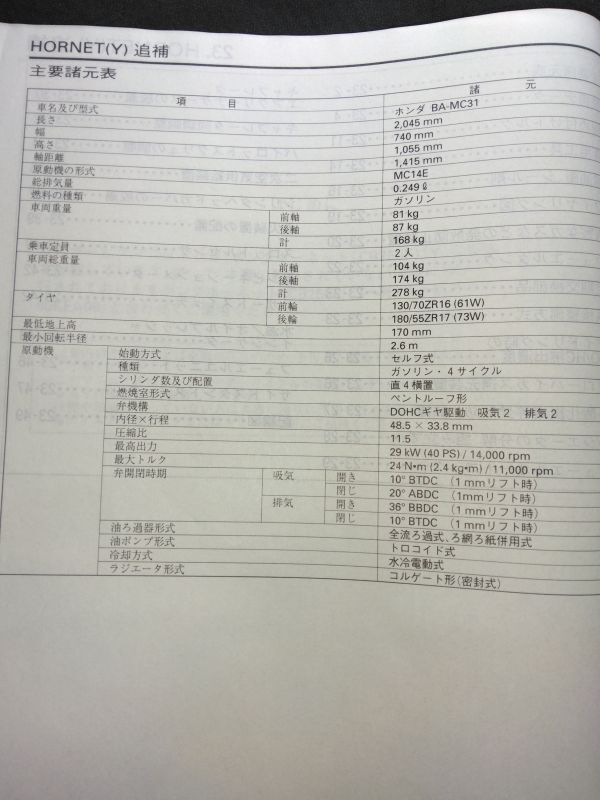 HORNET(Y) 追補
主要諸元表
項 目 諸 元
車名及び型式 ホンダ BA-MC31
長さ 2,045 mm
幅 740 mm
高さ 1,055 mm
軸距離 1,415 mm
原動機の形式 MC14E
総排気量 0.249 ℓ
燃料の種類 ガソリン
車両重量 前軸 81 kg
後軸 87 kg
計 168 kg
乗車定員 2 人
車両総重量 前軸 104 kg
後軸 174 kg
計 278 kg
タイヤ 前輪 130/70ZR16 (61W)
後輪 180/55ZR17 (73W)
最低地上高 170 mm
最小回転半径 2.6 m
原動機 始動方式 セルフ式
種類 ガソリン・4 サイクル
シリンダ数及び配置 直4 横置
燃焼室形式 ペントルーフ形
弁機構 DOHCギヤ駆動 吸気 2 排気 2
内径×行程 48.5 × 33.8 mm
圧縮比 11.5
最高出力 29 kW (40 PS) / 14,000 rpm
最大トルク 24 N•m (2.4 kg•m) / 11,000 rpm
弁開閉時期 吸気 開き 10° BTDC (1 mmリフト時)
閉じ 20° ABDC (1mmリフト時)
排気 開き 36° BBDC (1 mmリフト時)
閉じ 10° BTDC (1 mmリフト時)
油ろ過器形式 全流ろ過式、ろ網ろ紙併用式
油ポンプ形式 トロコイド式
冷却方式 水冷電動式
ラジエータ形式 コルゲート形(密封式)